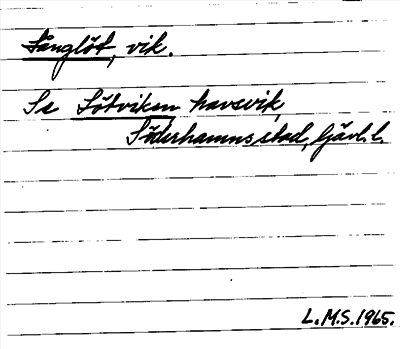 Långlöt, vik.
Se Lötviken havsvik,
Söderhamns stad, Gävl. l.
L.M.S. 1965.